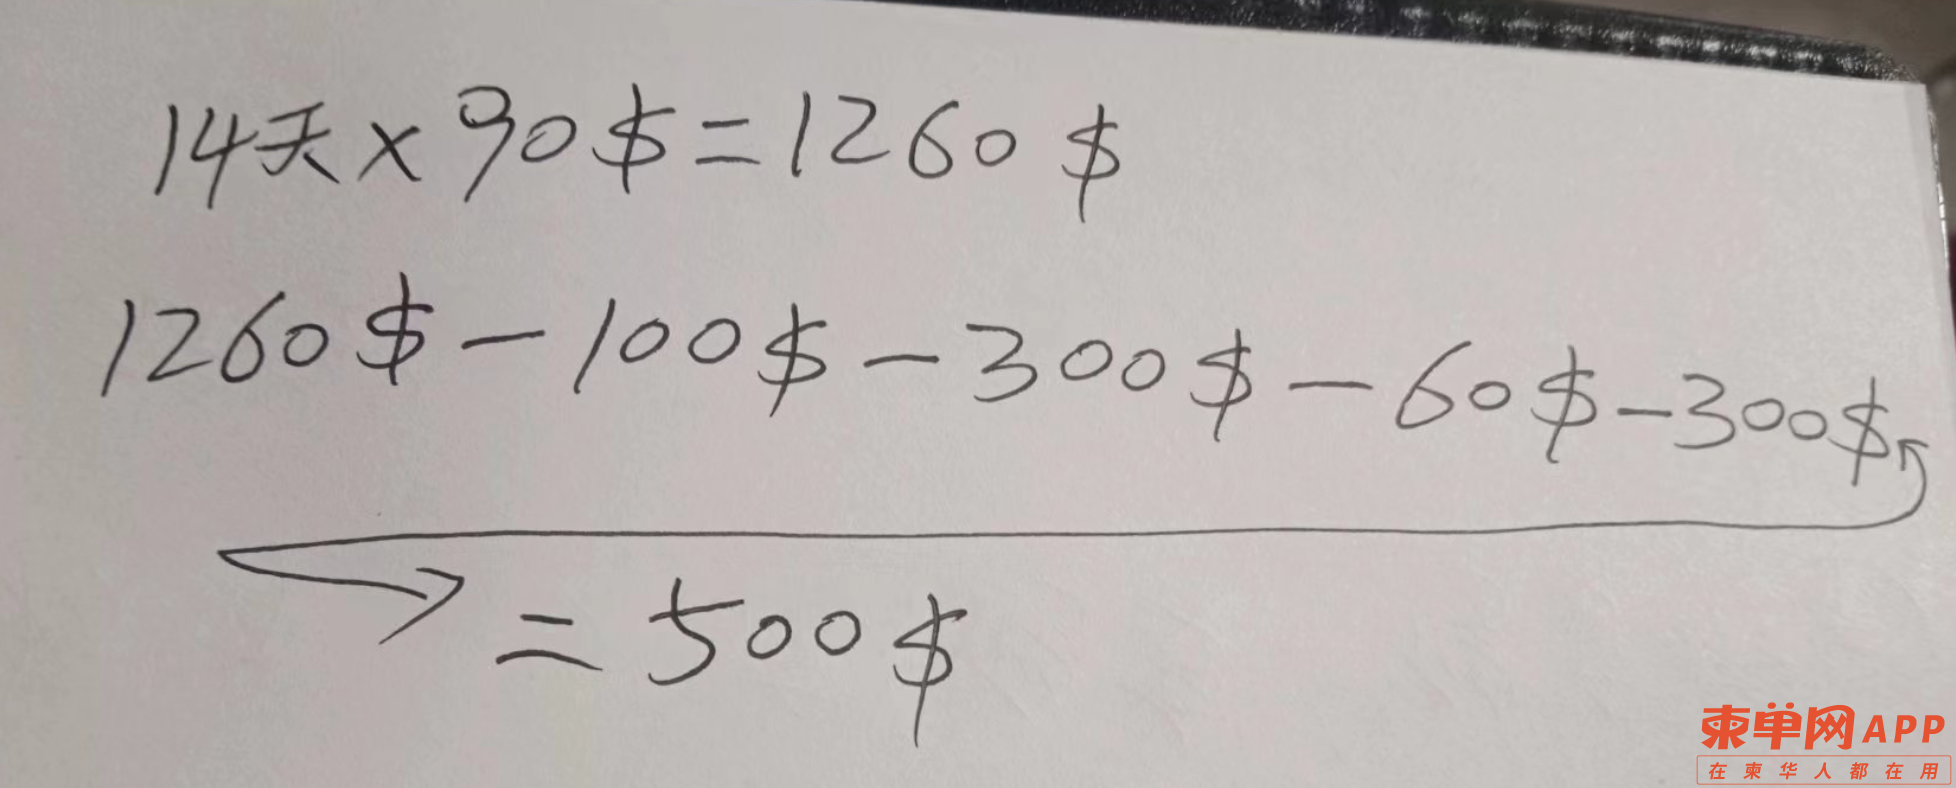 14天×90$=1260$
1260$-100$-300$-60$-300$
=500$
柬单网APP
在柬华人都在用